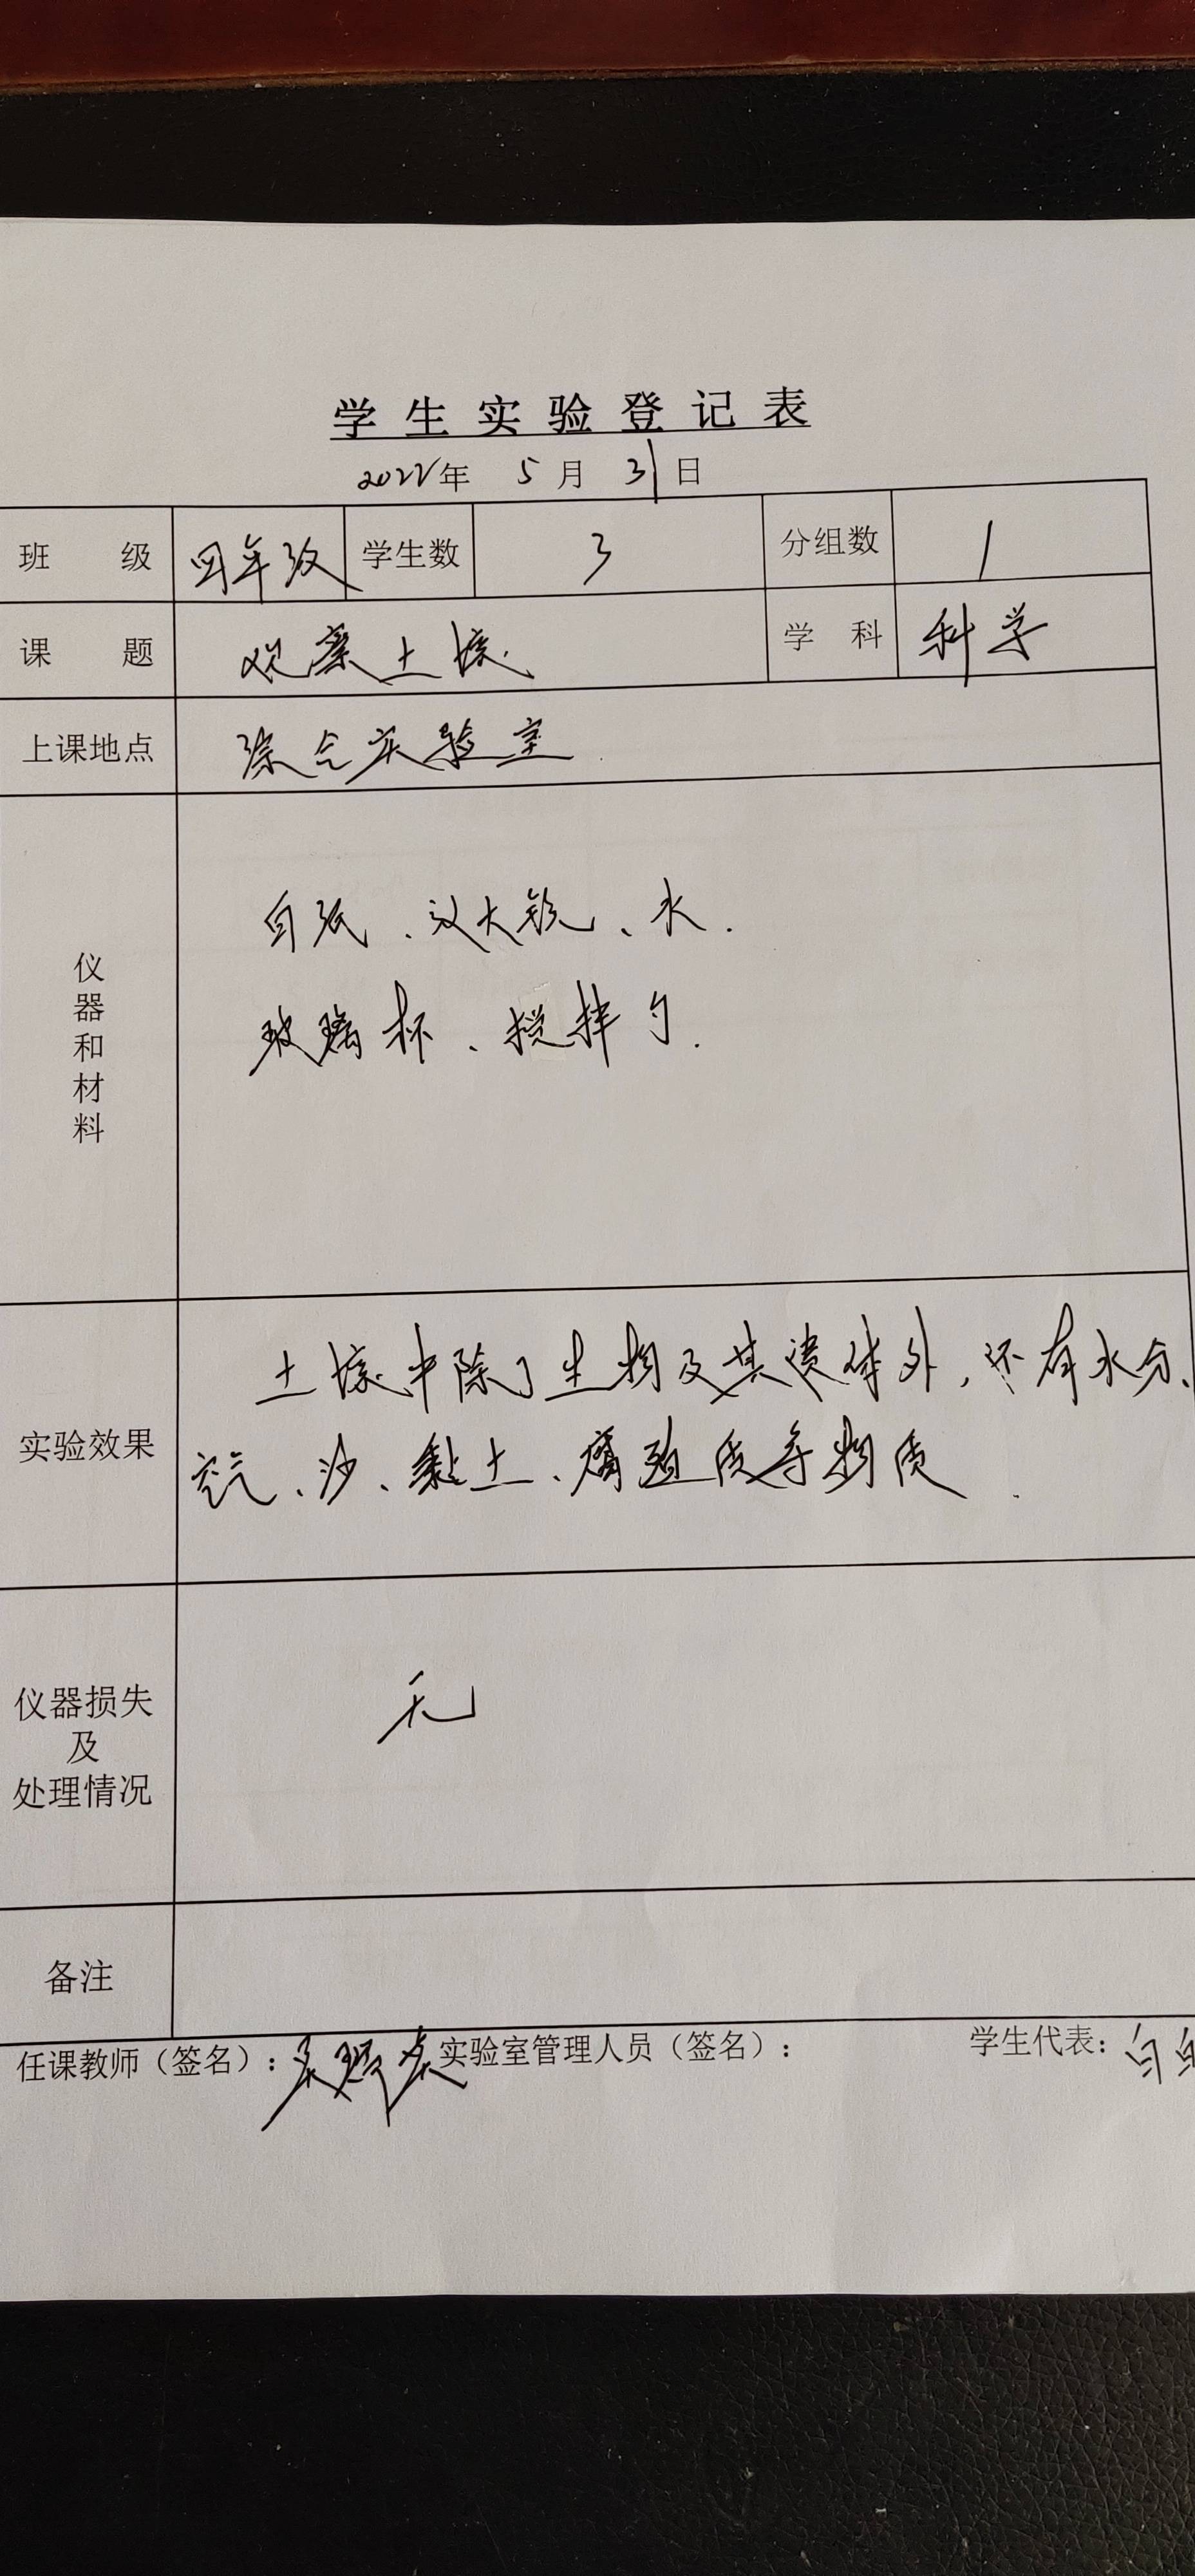 学生实验登记表
2022年 5月 31日
班 级 四年级 学生数 3 分组数 1
课 题 观察土壤. 学 科 科学
上课地点 综合实验室
仪器和材料
白纸、放大镜、水.
玻璃杯、搅拌勺.
实验效果
土壤中除了生物及其遗体外,还有水分、
空气、沙、黏土、腐殖质等物质.
仪器损失
及
处理情况
无
备注
任课教师（签名）： 实验室管理人员（签名）： 学生代表：白